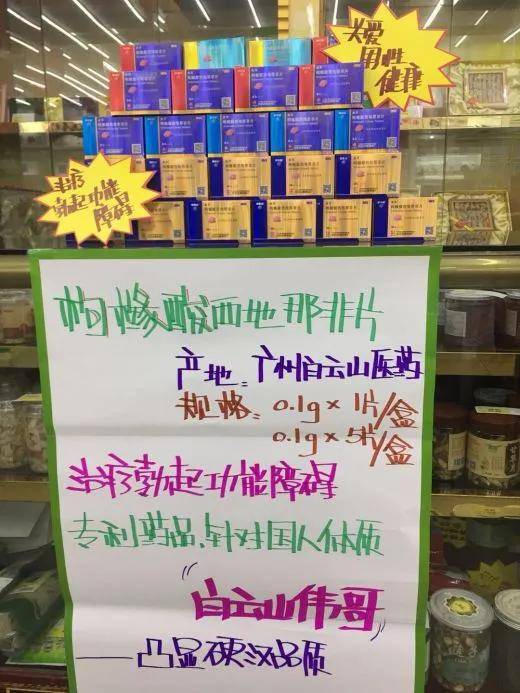 关爱
男性
健康
治疗
勃起功能
障碍
枸橼酸西地那非片
枸橼酸西地那非片
产地:广州白云山医药
规格:0.1g×1片/盒
0.1g×5片/盒
治疗勃起功能障碍
专利药品、针对国人体质
“白云山伟哥”
——凸显硬汉品质